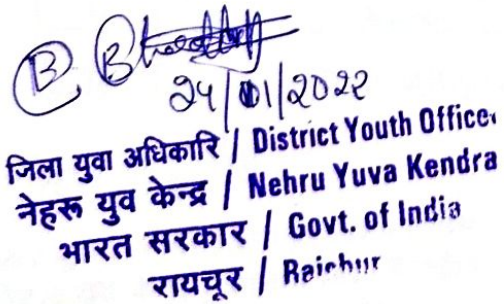 B
24/01/2022
जिला युवा अधिकारि / District Youth Officer
नेहरू युव केन्द्र / Nehru Yuva Kendra
भारत सरकार / Govt. of India
रायचूर / Raichur